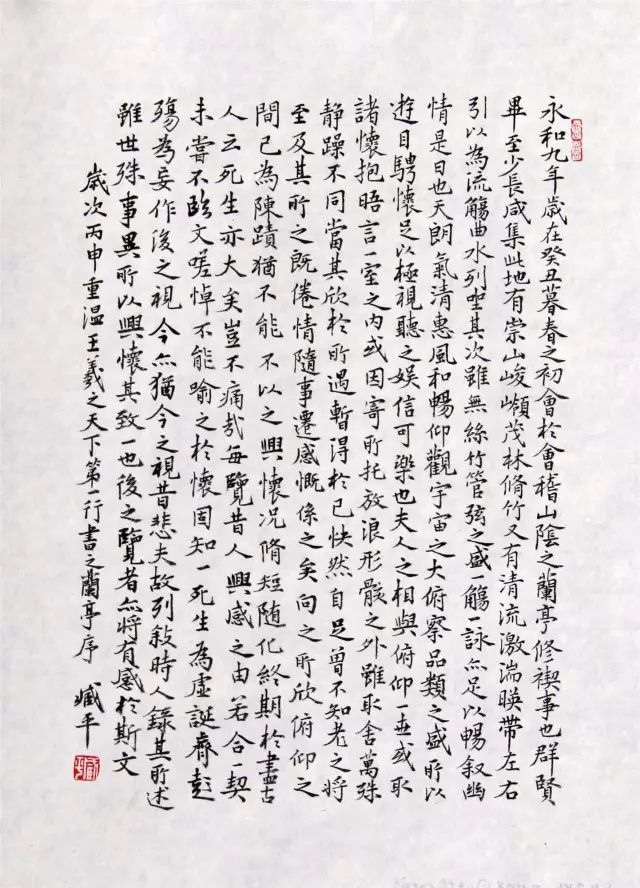 永和九年歲在癸丑暮春之初會於會稽山陰之蘭亭修禊事也群賢
畢至少長咸集此地有崇山峻嶺茂林脩竹又有清流激湍暎帶左右
引以為流觴曲水列坐其次雖無絲竹管弦之盛一觴一詠亦足以暢叙幽
情是日也天朗氣清惠風和暢仰觀宇宙之大俯察品類之盛所以
遊目騁懷足以極視聽之娱信可樂也夫人之相與俯仰一世或取
諸懷抱晤言一室之内或因寄所托放浪形骸之外雖取舍萬殊
静躁不同當其欣於所遇暫得於己快然自足曾不知老之將
至及其所之既倦情隨事遷感慨係之矣向之所欣俯仰之
間已為陳蹟猶不能不以之興懷况脩短随化終期於盡古
人云死生亦大矣豈不痛哉每覽昔人興感之由若合一契
未嘗不臨文嗟悼不能喻之於懷固知一死生為虛誕齊彭
殤為妄作後之視今亦猶今之視昔悲夫故列敍時人錄其所述
雖世殊事異所以興懷其致一也後之覽者亦將有感於斯文
歲次丙申重温王羲之天下第一行書之蘭亭序 臧平